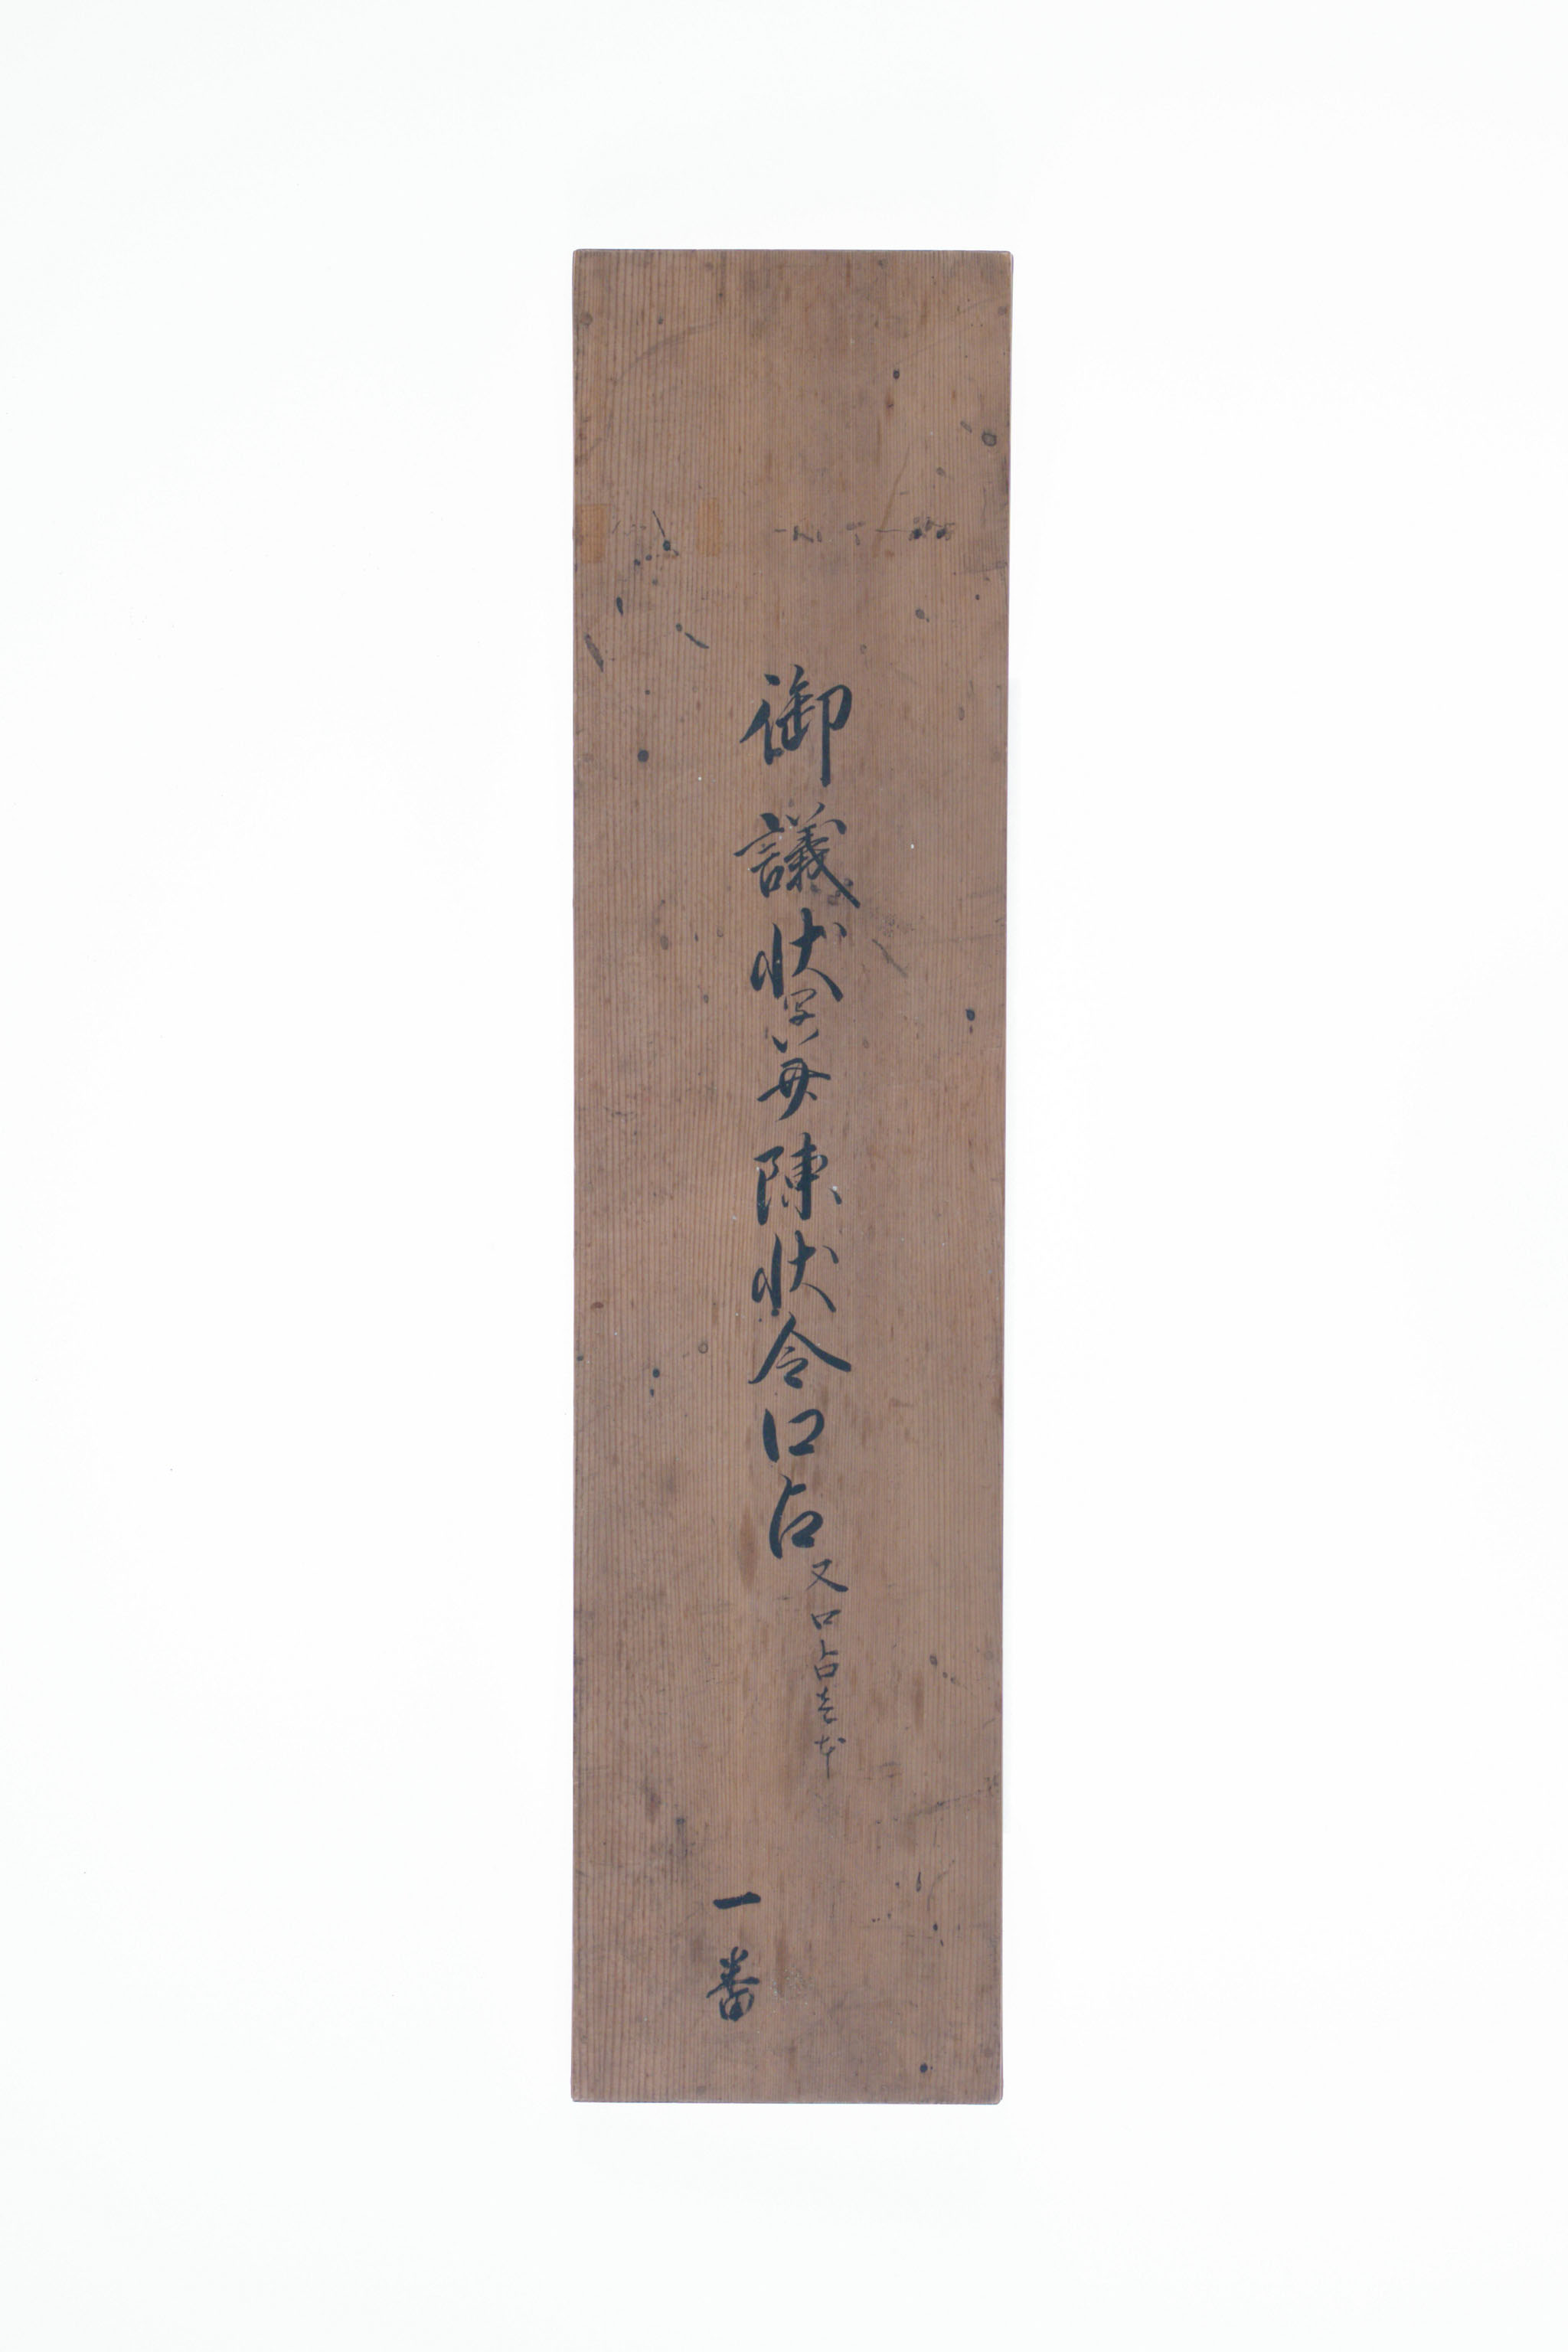 御議状写并陳状令口占
又口占本
一番